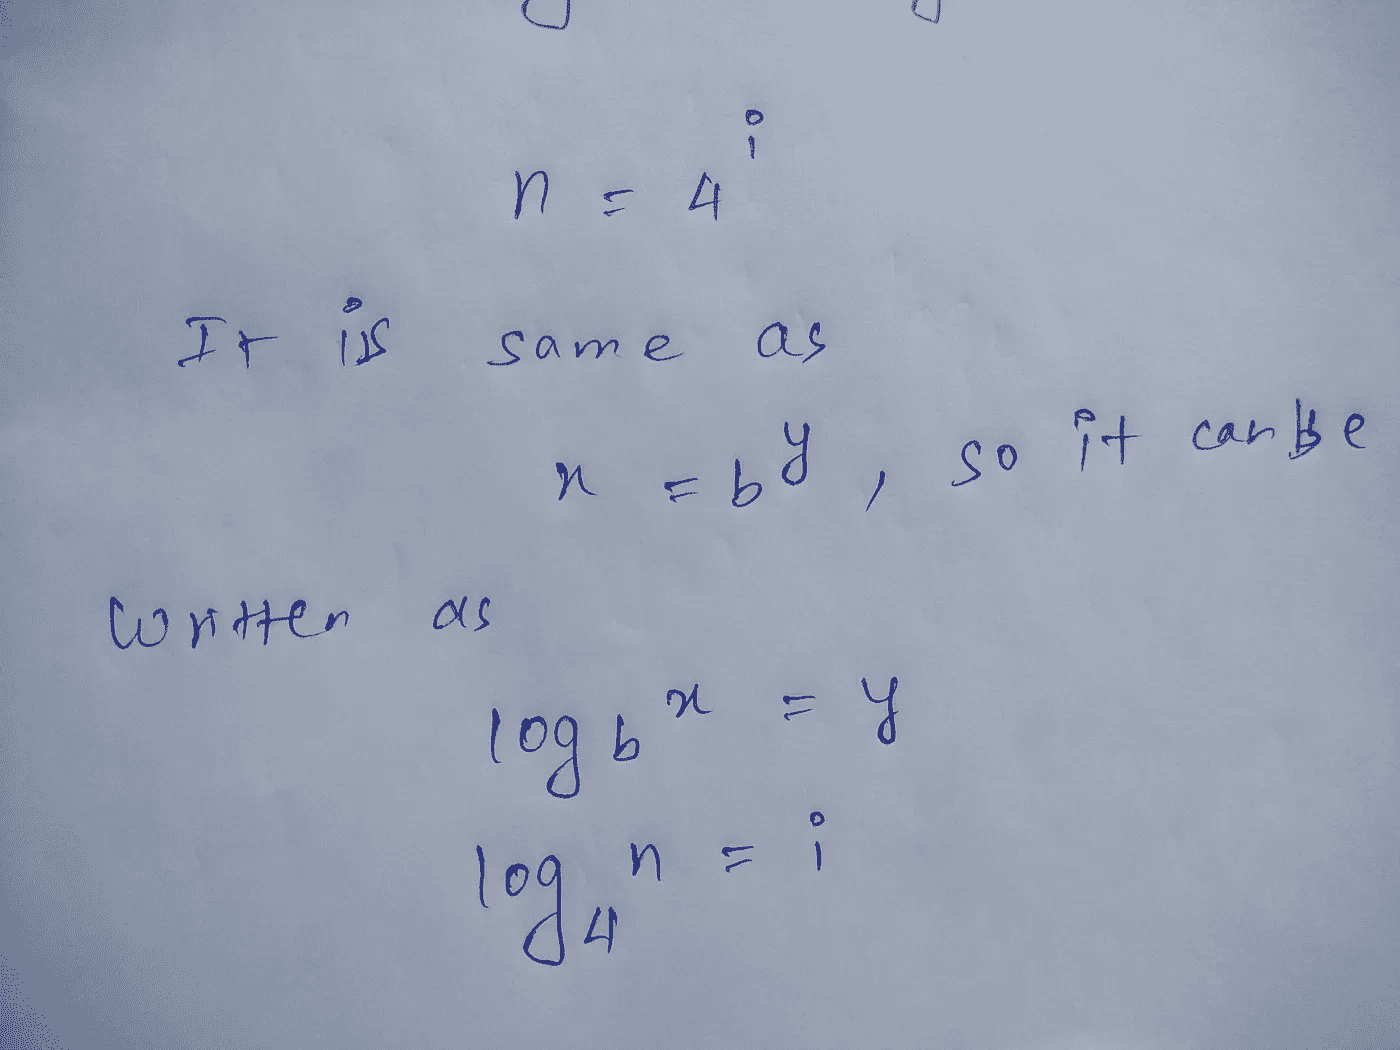 n = 4^i
It is same as
x = b^y, so it can be
written as
log_b x = y
log_4 n = i